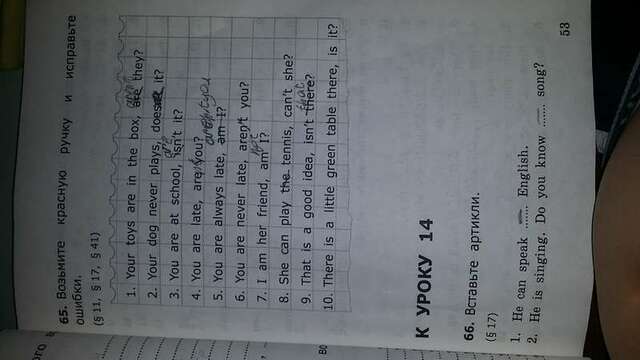 65. Возьмите красную ручку и исправьте
ошибки.
(§ 11, § 17, § 41)
1. Your toys are in the box, are they?
2. Your dog never plays, does it?
3. You are at school, isn't it?
are
4. You are late, aren't you?
5. You are always late, am I?
aren't you
6. You are never late, aren't you?
7. I am her friend, am I?
8. She can play the tennis, can't she?
9. That is a good idea, isn't there?
that
10. There is a little green table there, is it?
К УРОКУ 14
66. Вставьте артикли.
(§ 17)
1. He can speak ........ English.
2. He is singing. Do you know ........ song?
53